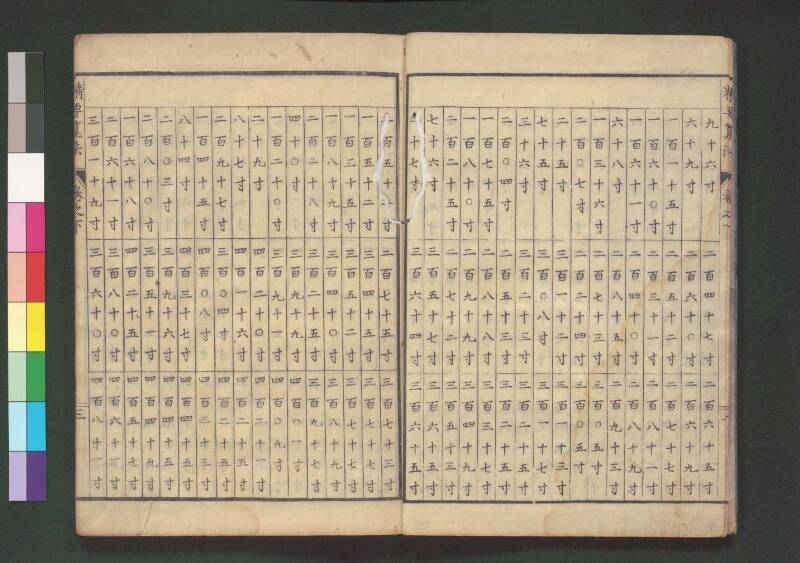 九十六寸 二百四十七寸 二百六十五寸
六十九寸 二百六十〇寸 二百六十九寸
一百一十五寸 二百五十二寸 二百七十七寸
一百六十〇寸 二百三十一寸 二百八十一寸
一百六十一寸 二百四十〇寸 二百八十九寸
六十八寸 二百八十五寸 二百九十三寸
一百三十六寸 二百七十三寸 三百〇五寸
二百〇七寸 二百二十四寸 三百〇五寸
二十五寸 三百一十二寸 三百一十三寸
七十五寸 三百〇八寸 三百一十七寸
三十六寸 三百二十三寸 三百二十五寸
二百〇四寸 二百五十三寸 三百二十五寸
一百七十五寸 二百八十八寸 三百三十七寸
一百八十〇寸 二百九十九寸 三百四十九寸
二百二十五寸 二百七十二寸 三百五十三寸
七十六寸 三百五十七寸 三百六十五寸
二十七寸 三百六十四寸 三百六十五寸
二百五十二寸 二百七十五寸 三百七十三寸
一百五十二寸 三百四十五寸 三百七十七寸
一百三十五寸 三百五十二寸 三百七十七寸
一百八十九寸 三百四十〇寸 三百八十九寸
二百二十八寸 三百二十五寸 三百九十七寸
四十〇寸 三百九十九寸 四百〇一寸
一百二十〇寸 三百九十一寸 四百〇九寸
二十九寸 四百二十〇寸 四百二十一寸
八十七寸 四百一十六寸 四百二十五寸
二百九十七寸 三百〇四寸 四百二十五寸
一百四十五寸 四百〇八寸 四百三十三寸
八十四寸 四百三十七寸 四百四十五寸
二百〇三寸 三百九十六寸 四百四十五寸
二百八十〇寸 三百五十一寸 四百四十九寸
一百六十八寸 四百二十五寸 四百五十七寸
二百六十一寸 三百八十〇寸 四百六十一寸
三百一十九寸 三百六十〇寸 四百八十一寸
精要算法 卷之下 三